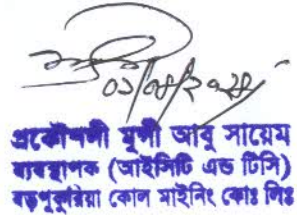 ০১/০৪/২০২৪
প্রকৌশলী মুন্সী আবু সায়েম
ব্যবস্থাপক (আইসিটি এন্ড টিসি)
বড়পুকুরিয়া কোল মাইনিং কোঃ লিঃ